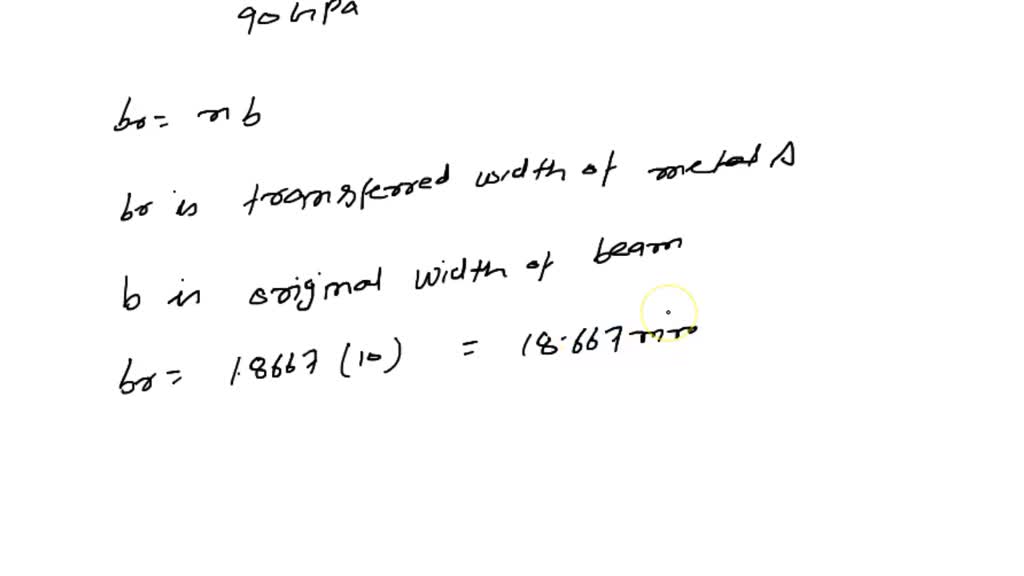 90 GPa
br = n b
br is transferred width of metal A
b is original width of beam
br = 1.8667 (10) = 18.667 mm